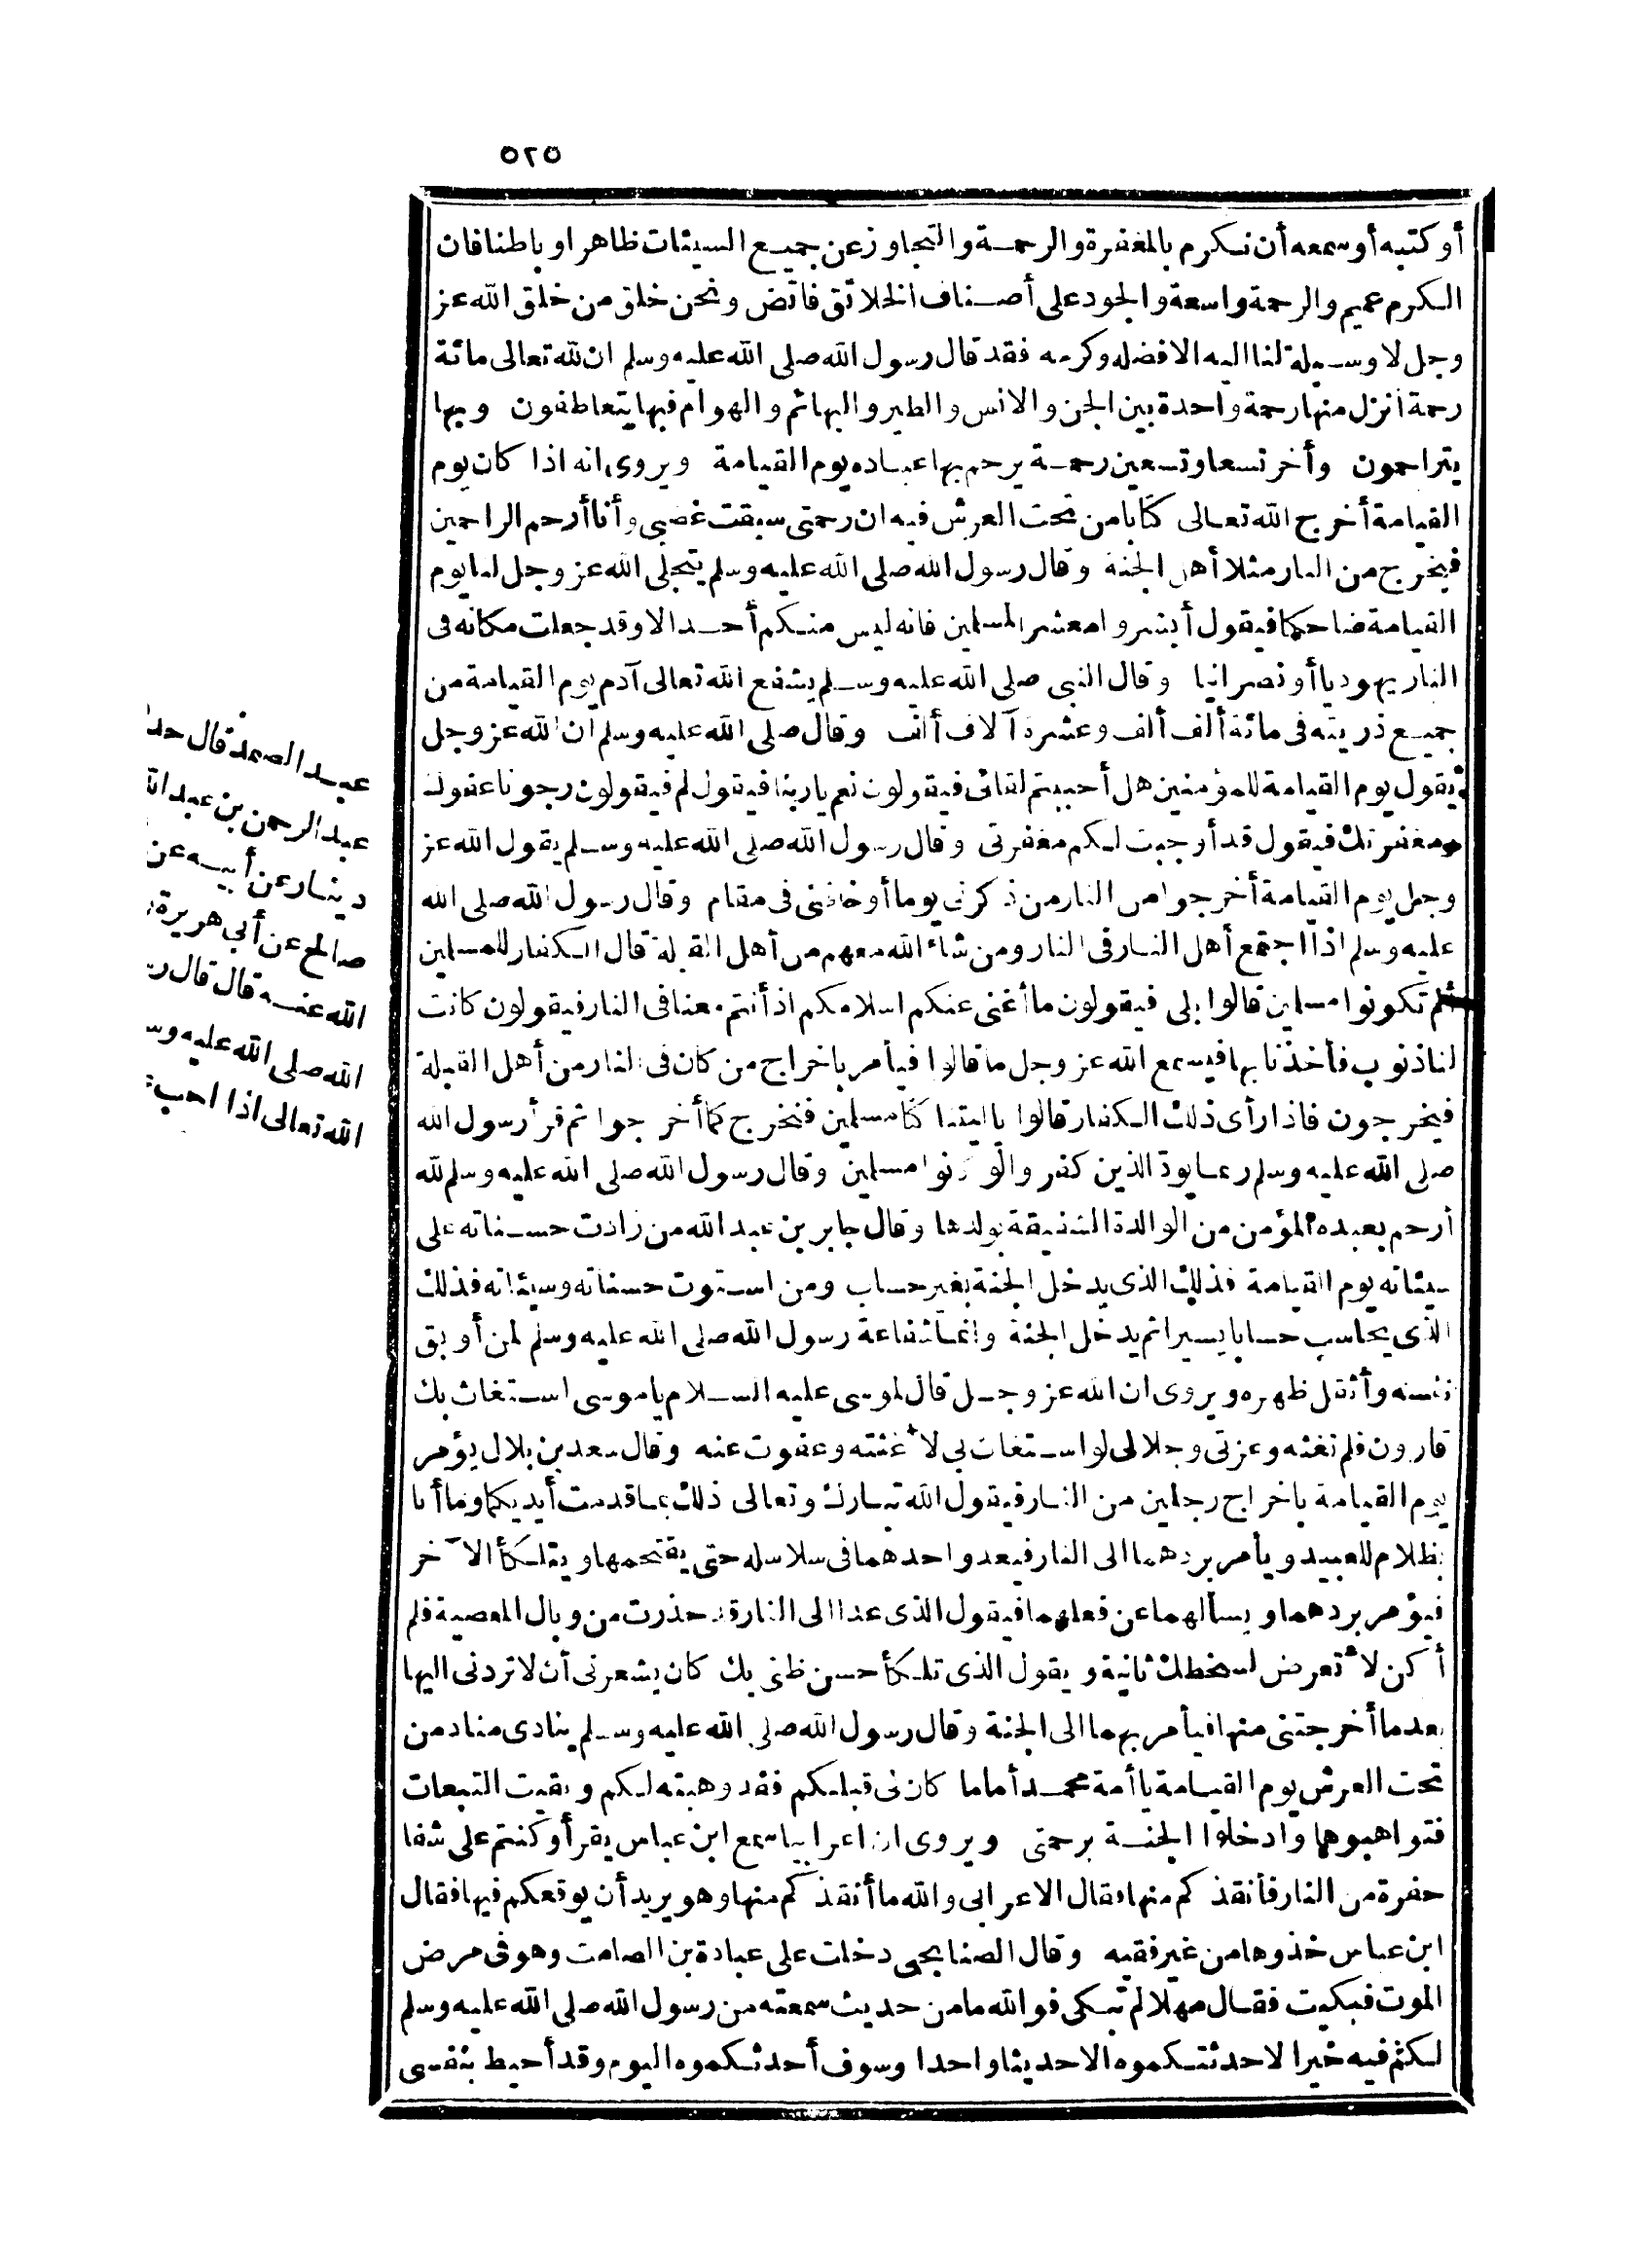 ٥٢٥
أو كتبه أو سمعه أن نكرم بالمغفرة والرحمة والتجاوز عن جميع السيئات ظاهرا وباطنا فان
الكرم عميم والرحمة واسعة والجود على أصناف الخلائق فائض ونحن خلق من خلق الله عز
وجل لا وسيلة لنا اليه الا فضله وكرمه فقد قال رسول الله صلى الله عليه وسلم ان لله تعالى مائة
رحمة أنزل منها رحمة واحدة بين الجن والانس والطير والبهائم والهوام فبها يتعاطفون وبها
يتراحمون وأخر تسعا وتسعين رحمة يرحم بها عباده يوم القيامة ويروى انه اذا كان يوم
القيامة أخرج الله تعالى كتابا من تحت العرش فيه ان رحمتى سبقت غضبى وأنا أرحم الراحمين
فيخرج من النار مثلا أهل الجنة وقال رسول الله صلى الله عليه وسلم يتجلى الله عز وجل لنا يوم
القيامة ضاحكا فيقول أبشروا معشر المسلمين فانه ليس منكم أحد الا وقد جعلت مكانه فى
النار يهوديا أو نصرانيا وقال النبى صلى الله عليه وسلم يشفع الله تعالى آدم يوم القيامة من
جميع ذريته فى مائة ألف ألف وعشرة آلاف ألف وقال صلى الله عليه وسلم ان الله عز وجل
يقول يوم القيامة للمؤمنين هل أحببتم لقائى فيقولون نعم ياربنا فيقول لم فيقولون رجونا عفوك
ومغفرتك فيقول قد أوجبت لكم مغفرتى وقال رسول الله صلى الله عليه وسلم يقول الله عز
وجل يوم القيامة أخرجوا من النار من ذكرنى يوما أو خافنى فى مقام وقال رسول الله صلى الله
عليه وسلم اذا اجتمع أهل النار فى النار ومن شاء الله معهم من أهل القبلة قال الكفار للمسلمين
ألم تكونوا مسلمين قالوا بلى فيقولون ما أغنى عنكم اسلامكم اذ أنتم معنا فى النار فيقولون كانت
لنا ذنوب فأخذنا بها فيسمع الله عز وجل ما قالوا فيأمر باخراج من كان فى النار من أهل القبلة
فيخرجون فاذا رأى ذلك الكفار قالوا ياليتنا كنا مسلمين فنخرج كما أخرجوا ثم قرأ رسول الله
صلى الله عليه وسلم ربما يود الذين كفروا لو كانوا مسلمين وقال رسول الله صلى الله عليه وسلم لله
أرحم بعبده المؤمن من الوالدة الشفيقة بولدها وقال جابر بن عبد الله من زادت حسناته على
سيئاته يوم القيامة فذلك الذى يدخل الجنة بغير حساب ومن استوت حسناته وسيئاته فذلك
الذى يحاسب حسابا يسيرا ثم يدخل الجنة وانما شفاعة رسول الله صلى الله عليه وسلم لمن أوبق
نفسه وأثقل ظهره ويروى ان الله عز وجل قال لموسى عليه السلام ياموسى استغاث بك
قارون فلم تغثه وعزتى وجلالى لو استغاث بى لاغثته وعفوت عنه وقال سعد بن بلال يؤمر
يوم القيامة باخراج رجلين من النار فيقول الله تبارك وتعالى ذلك بما قدمت أيديكما وما أنا
بظلام للعبيد ويأمر بردهما الى النار فيعدو احدهما فى سلاسله حتى يقتحمها ويتلكأ الآخر
فيؤمر بردهما ويسألهما عن فعلهما فيقول الذى عدا الى النار قد حذرت من وبال المعصية فلم
أكن لأتعرض لسخطك ثانية ويقول الذى تلكأ حسن ظنى بك كان يشعرنى أن لا تردنى اليها
بعدما أخرجتنى منها فيأمر بهما الى الجنة وقال رسول الله صلى الله عليه وسلم ينادى مناد من
تحت العرش يوم القيامة يا أمة محمد أما ما كان لى قبلكم فقد وهبته لكم وبقيت التبعات
فتواهبوها وادخلوا الجنة برحمتى ويروى ان اعرابيا سمع ابن عباس يقرأ وكنتم على شفا
حفرة من النار فأنقذكم منها فقال الاعرابى والله ما أنقذكم منها وهو يريد أن يوقعكم فيها فقال
ابن عباس خذوها من غير فقيه وقال الصنابحى دخلت على عبادة بن الصامت وهو فى مرض
الموت فبكيت فقال مهلا لم تبكى فوالله ما من حديث سمعته من رسول الله صلى الله عليه وسلم
لكم فيه خيرا لا حدثتكموه الا حديثا واحدا وسوف أحدثكموه اليوم وقد أحيط بنفسى
عبد الصمد قال
عبد الرحمن بن عبد
دينار عن أبيه عن
صالح عن أبى هريرة
الله عنه قال قال
الله صلى الله عليه
الله تعالى اذا احب